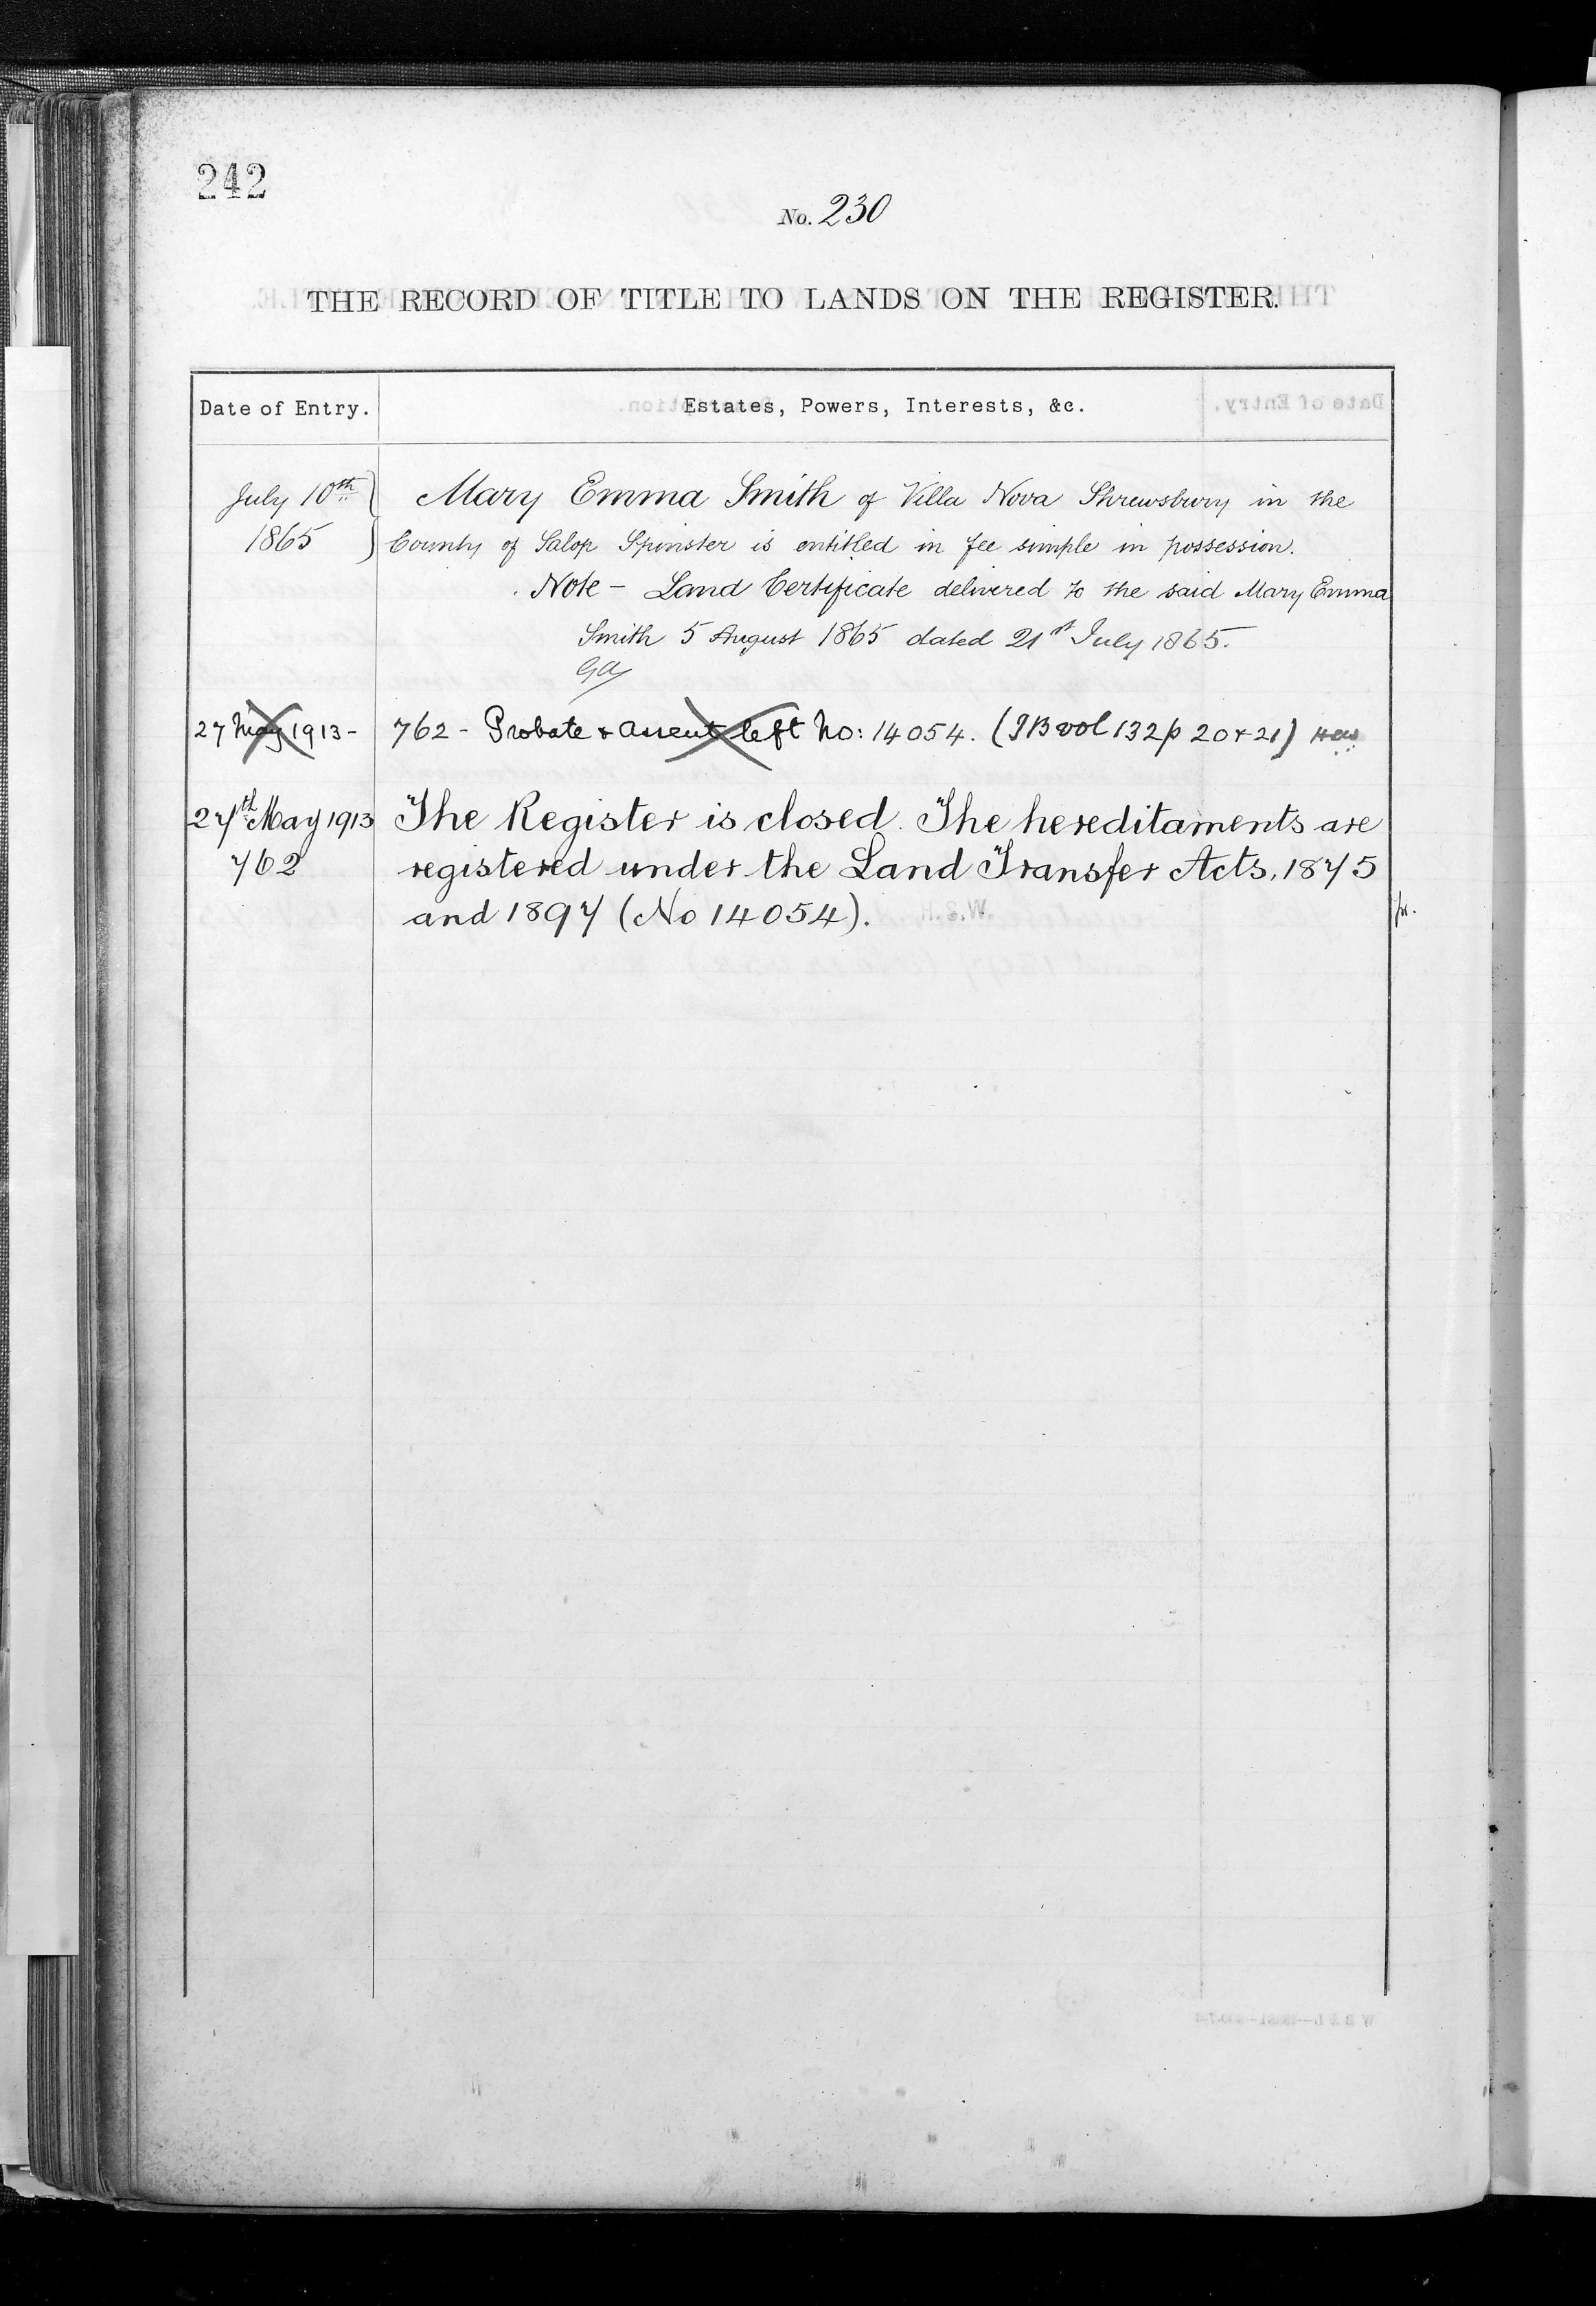 242
No. 230
THE RECORD OF TITLE TO LANDS ON THE REGISTER.
Date of Entry. Estates, Powers, Interests, &c.
July 10th Mary Emma Smith of Villa Nova Shrewsbury in the
1865 County of Salop Spinster is entitled in fee simple in possession.
Note - Land Certificate delivered to the said Mary Emma
Smith 5 August 1865 dated 21st July 1865.
27 May 1913 - 762 - Probate & assent left No: 14054. (IB vol 132 p 20 & 21)
27th May 1913 The Register is closed. The hereditaments are
762 registered under the Land Transfer Acts, 1875
and 1897 (No 14054).